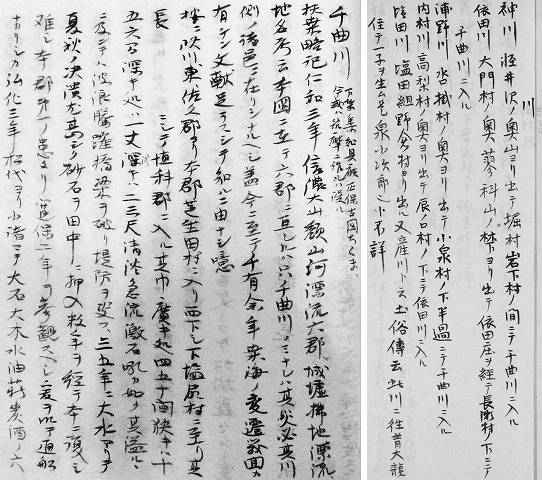 川
神川 涇井沢ノ奥山ヨリ出テ堀村岩下村ノ間ニテ千曲川ニ入ル
依田川 大門村ノ奥蓼科山ノ林下ヨリ出テ依田庄ヲ經テ長瀬村ノ下ニテ
千曲川ニ入ル
浦野川 沓掛村ノ奥ヨリ出テ小泉村ノ下半過ニテ千曲川ニ入ル
内村川 高梨村ノ奥ヨリ出テ辰ノ口村ノ下ニテ依田川ニ入ル
塩田川 塩田組野倉村ヨリ出ル又産川ト云土俗傳云此川ニ往昔大龍
住テ一子ヲ生ム是泉小次郎ト不詳
千曲川
扶桑略記仁和三年信濃大山頽山河漂流六郡、城墟拂地漂流
地名考云本國ニ在テ六郡ニ亘レルハ只千曲川ノミナレハ其災必其川
側ノ諸邑ニ在リシナルヘシ蓋今ニ至テ千有余年桑海ノ変遷幾回カ
有ケン文献足ラスシテ知ルニ由ナシ噫
按ニ此川東佐久郡ヨリ本郡芝生田村ニ入リ西下シ下塩尻村ニ至リ其
長 ニシテ埴科郡ニ入ル其巾廣キ処四五十間狭キハ十
五六間深キ処ハ一丈浅キハ二三尺清流急流激石吼ルカ如シ其溢ルヽ
ニ及テハ波浪騰躍橋梁ヲ破リ堤防ヲ
夏秋ノ決潰尤甚シク砂石ヲ田中ニ押入数年ヲ經テ本ニ復シ
難シ本郡第一ノ患ナリ寛保二年ヲ参観スヘシ
ナカリシカ弘化三年松代ヨリ小諸マテ大石大木水油薪炭酒ノ六